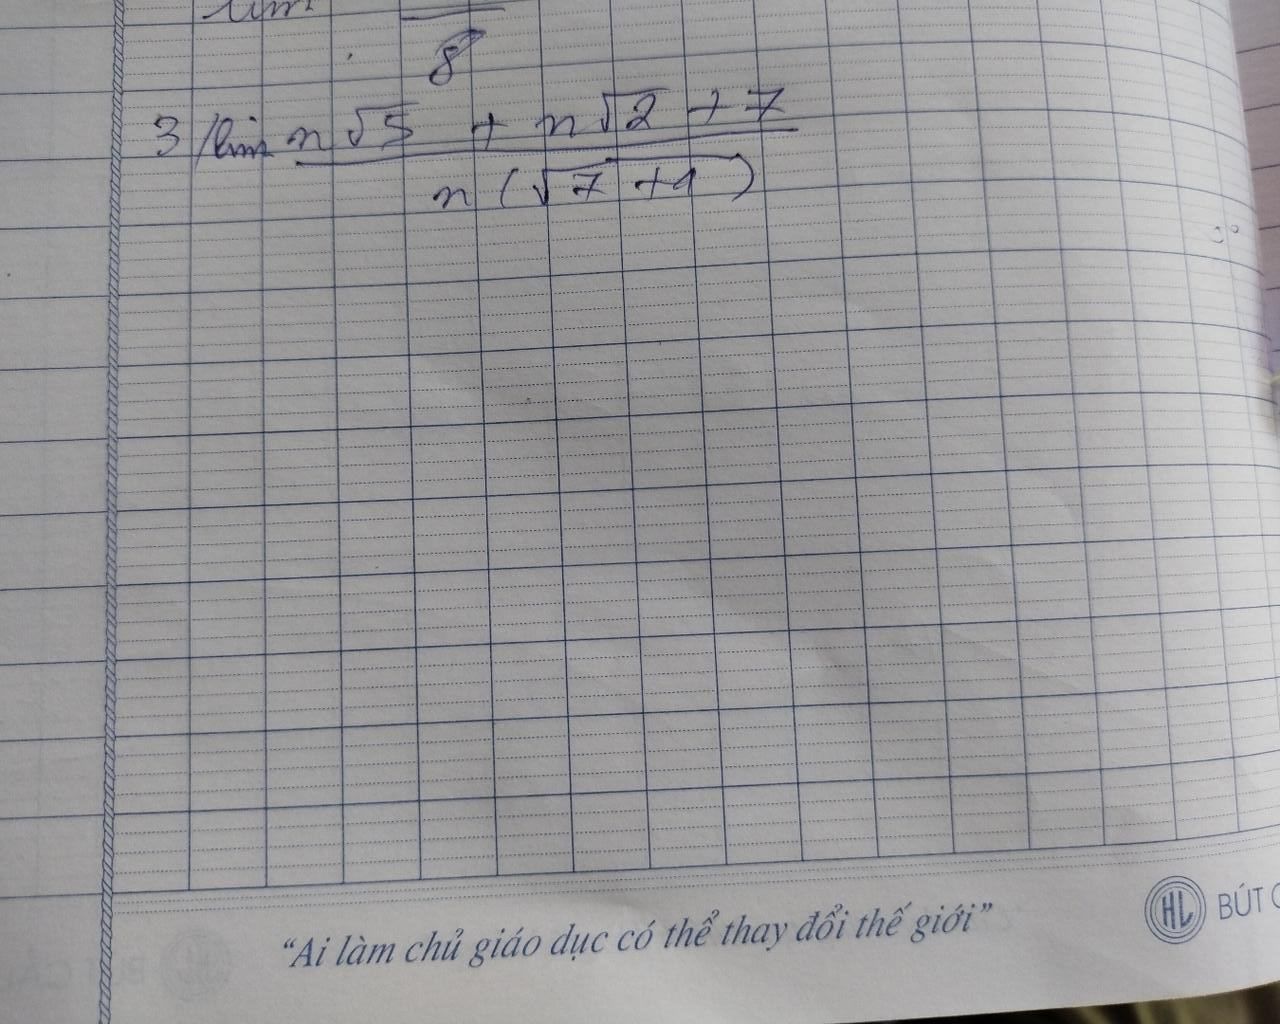 lim
8
3/ lim n√5 + n√2 + 7
n (√7 + 1)
"Ai làm chủ giáo dục có thể thay đổi thế giới"
HL BÚT